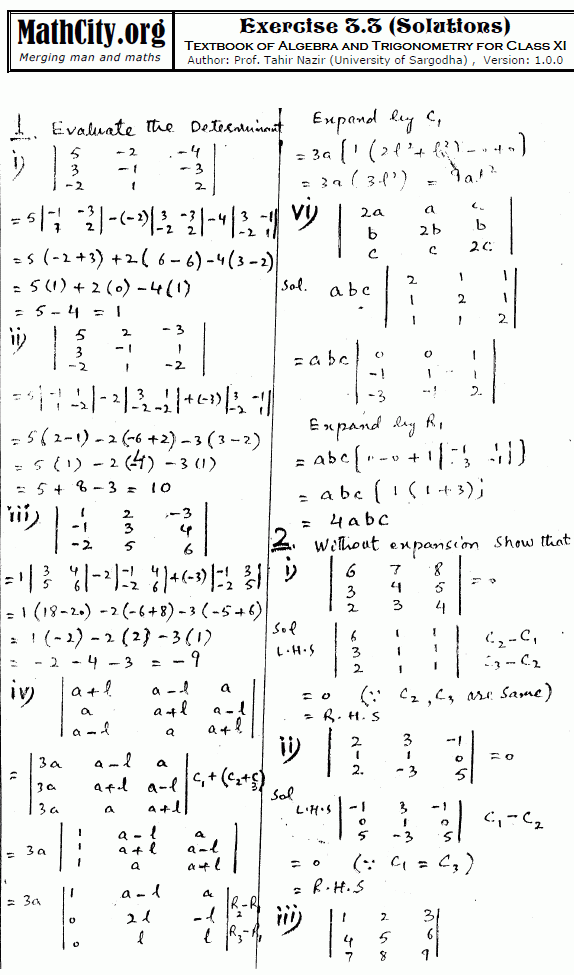 MathCity.org
Merging man and maths
Exercise 3.3 (Solutions)
TEXTBOOK OF ALGEBRA AND TRIGONOMETRY FOR CLASS XI
Author: Prof. Tahir Nazir (University of Sargodha) , Version: 1.0.0
1. Evaluate the Determinant
i) | 5 -2 -4 |
| 3 -1 -3 |
| -2 1 2 |
= 5 |-1 -3; 1 2| -(-2) |3 -3; -2 2| -4 |3 -1; -2 1|
= 5 (-2+3) + 2( 6-6) -4(3-2)
= 5(1) + 2(0) -4(1)
= 5 - 4 = 1
ii) | 5 2 -3 |
| 3 -1 1 |
| -2 1 -2 |
= 5 |-1 1; 1 -2| -2 |3 1; -2 -2| +(-3) |3 -1; -2 1|
= 5(2-1) -2(-6+2) -3(3-2)
= 5(1) -2(-4) -3(1)
= 5 + 8 -3 = 10
iii) | 1 2 -3 |
| -1 3 4 |
| -2 5 6 |
= 1 |3 4; 5 6| -2 |-1 4; -2 6| +(-3) |-1 3; -2 5|
= 1(18-20) -2(-6+8) -3(-5+6)
= 1(-2) -2(2) -3(1)
= -2 -4 -3 = -9
iv) | a+l a-l a |
| a a+l a-l |
| a-l a a+l |
= | 3a a-l a |
| 3a a+l a-l | C1+(C2+C3)
| 3a a a+l |
= 3a | 1 a-l a |
| 1 a+l a-l |
| 1 a a+l |
= 3a | 1 a-l a |
| 0 2l -l | R2-R1
| 0 l l | R3-R1
Expand by C1
= 3a {1 (2l²+l²) -0+0}
= 3a (3l²) = 9al²
vi) | 2a a a |
| b 2b b |
| c c 2c |
Sol. abc | 2 1 1 |
| 1 2 1 |
| 1 1 2 |
= abc | 0 0 1 |
| -1 1 1 |
| -3 -1 2 |
Expand by R1
= abc {0-0+1 |-1 1; -3 -1|}
= abc { 1(1+3)}
= 4abc
2. Without expansion show that
i) | 6 7 8 |
| 3 4 5 | = 0
| 2 3 4 |
Sol
L.H.S | 6 1 1 | C2-C1
| 3 1 1 | C3-C2
| 2 1 1 |
= 0 (∵ C2, C3 are same)
= R.H.S
ii) | 2 3 -1 |
| 1 1 0 | = 0
| 2 -3 5 |
Sol
L.H.S | -1 3 -1 |
| 0 1 0 | C1-C2
| 5 -3 5 |
= 0 (∵ C1 = C3)
= R.H.S
iii) | 1 2 3 |
| 4 5 6 |
| 7 8 9 |